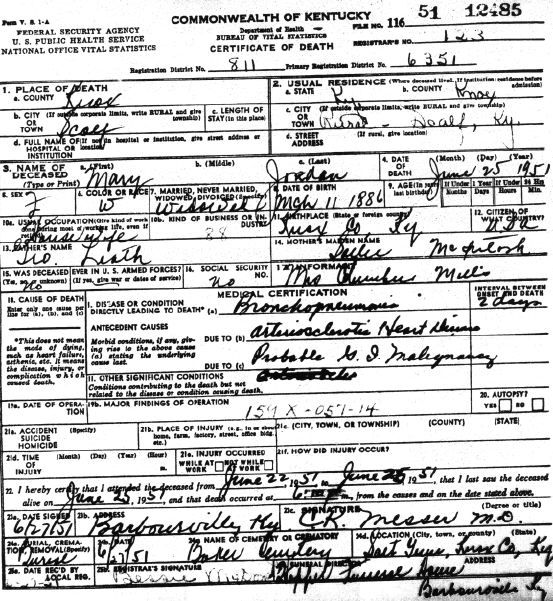 Form V. S. 1-A
COMMONWEALTH OF KENTUCKY
FILE NO. 116 51 12485
FEDERAL SECURITY AGENCY
U. S. PUBLIC HEALTH SERVICE
NATIONAL OFFICE VITAL STATISTICS
Department of Health
BUREAU OF VITAL STATISTICS
CERTIFICATE OF DEATH
REGISTRAR'S NO. 123
Registration District No. 811 Primary Registration District No. 6351
1. PLACE OF DEATH
a. COUNTY Knox
b. CITY (If outside corporate limits, write RURAL and give township) OR TOWN Scalf
c. LENGTH OF STAY (in this place)
d. FULL NAME OF (If not in hospital or institution, give street address or location) HOSPITAL OR INSTITUTION
2. USUAL RESIDENCE (Where deceased lived. If institution: residence before admission)
a. STATE Ky b. COUNTY Knox
c. CITY (If outside corporate limits, write RURAL and give township) OR TOWN Rural - Scalf, Ky.
d. STREET ADDRESS (If rural, give location)
3. NAME OF DECEASED (Type or Print) a. (First) Mary b. (Middle) c. (Last) Jordan
4. DATE OF DEATH (Month) (Day) (Year) June 25 1951
5. SEX F
6. COLOR OR RACE W
7. MARRIED, NEVER MARRIED, WIDOWED, DIVORCED (Specify) Widowed
8. DATE OF BIRTH Mch 11 1886
9. AGE (In years last birthday) If Under 1 Year Months Days If Under 24 Hrs Hours Min.
10a. USUAL OCCUPATION (Give kind of work done during most of working life, even if retired) Housewife
10b. KIND OF BUSINESS OR INDUSTRY 88
11. BIRTHPLACE (State or foreign country) Knox Co, Ky
12. CITIZEN OF WHAT COUNTRY? USA
13. FATHER'S NAME
14. MOTHER'S MAIDEN NAME McIntosh
15. WAS DECEASED EVER IN U. S. ARMED FORCES? (If yes, give war or dates of service) No
16. SOCIAL SECURITY NO. No
17. INFORMANT Mrs Mills
18. CAUSE OF DEATH
Enter only one cause per line for (a), (b), and (c)
*This does not mean the mode of dying, such as heart failure, asthenia, etc. It means the disease, injury, or complication which caused death.
MEDICAL CERTIFICATION
INTERVAL BETWEEN ONSET AND DEATH
I. DISEASE OR CONDITION DIRECTLY LEADING TO DEATH* (a) Bronchopneumonia 2 days
ANTECEDENT CAUSES
Morbid conditions, if any, giving rise to the above cause (a) stating the underlying cause last.
DUE TO (b) Arteriosclerotic Heart Disease
DUE TO (c) Probable G. I. Malignancy
II. OTHER SIGNIFICANT CONDITIONS
Conditions contributing to the death but not related to the disease or condition causing death.
19a. DATE OF OPERATION
19b. MAJOR FINDINGS OF OPERATION 159X-051-14
20. AUTOPSY? YES NO
21a. ACCIDENT SUICIDE HOMICIDE (Specify)
21b. PLACE OF INJURY (e.g., in or about home, farm, factory, street, office bldg. etc.)
21c. (CITY, TOWN, OR TOWNSHIP) (COUNTY) (STATE)
21d. TIME OF INJURY (Month) (Day) (Year) (Hour) m.
21e. INJURY OCCURRED WHILE AT WORK NOT WHILE AT WORK
21f. HOW DID INJURY OCCUR?
22. I hereby certify that I attended the deceased from June 22, 1951 to June 25, 1951, that I last saw the deceased
alive on June 25, 1951, and that death occurred at m, from the causes and on the date stated above.
23a. DATE SIGNED 6/27/51
23b. ADDRESS Barbourville, Ky
23c. SIGNATURE C.R. Messer M.D. (Degree or title)
24a. BURIAL, CREMATION, REMOVAL (Specify) Burial
24b. DATE 6/27/51
24c. NAME OF CEMETERY OR CREMATORY Baker Cemetery
24d. LOCATION (City, town, or county) (State) Knox Co, Ky
25a. DATE REC'D BY LOCAL REG.
25b. REGISTRAR'S SIGNATURE Bessie
FUNERAL DIRECTOR Hopper Funeral Home
ADDRESS Barbourville Ky